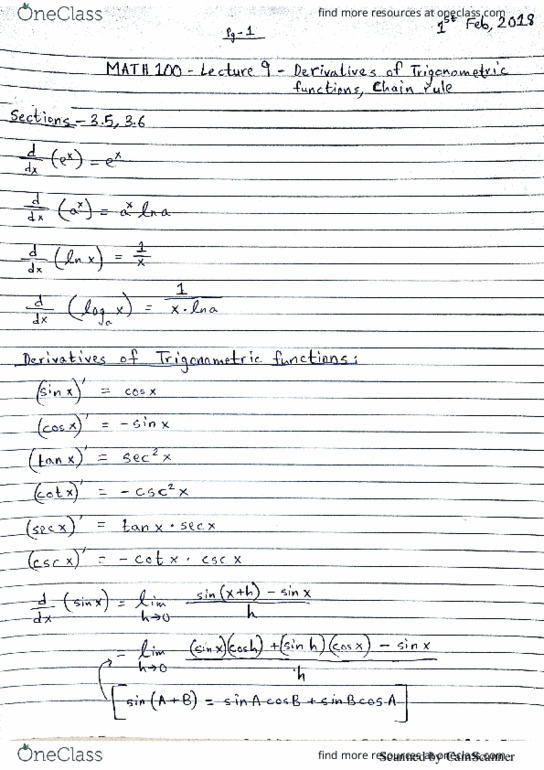 OneClass
find more resources at oneclass.com
pg-1
1st Feb, 2018
MATH 100 - Lecture 9 - Derivatives of Trigonometric
functions, Chain rule
Sections - 3.5, 3.6
d/dx (e^x) = e^x
d/dx (a^x) = a^x ln a
d/dx (ln x) = 1/x
d/dx (log_a x) = 1/(x · ln a)
Derivatives of Trigonometric functions:
(sin x)' = cos x
(cos x)' = - sin x
(tan x)' = sec² x
(cot x)' = - csc² x
(sec x)' = tan x · sec x
(csc x)' = - cot x · csc x
d/dx (sin x) = lim h→0 (sin (x+h) - sin x)/h
= lim h→0 ((sin x)(cos h) + (sin h)(cos x) - sin x)/h
[sin (A+B) = sin A cos B + sin B cos A]
OneClass
find more resources at oneclass.com
Scanned by CamScanner